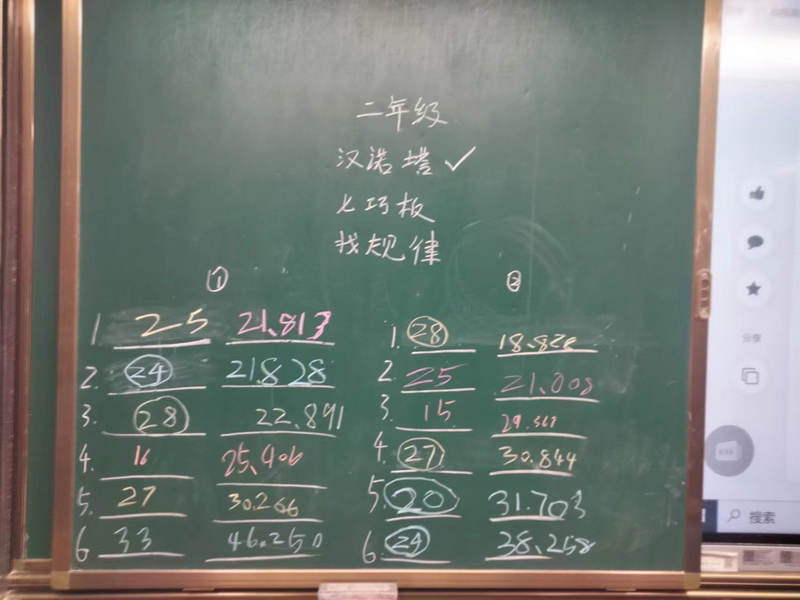 二年级
汉诺塔✓
七巧板
找规律
①
1 25 21.813
2. 24 21.828
3. 28 22.891
4. 16 25.906
5. 27 30.266
6 33 46.250
②
1. 28 18.828
2. 25 21.008
3. 15
4. 27 30.844
5. 20 31.703
6. 24 38.258
分享
搜索